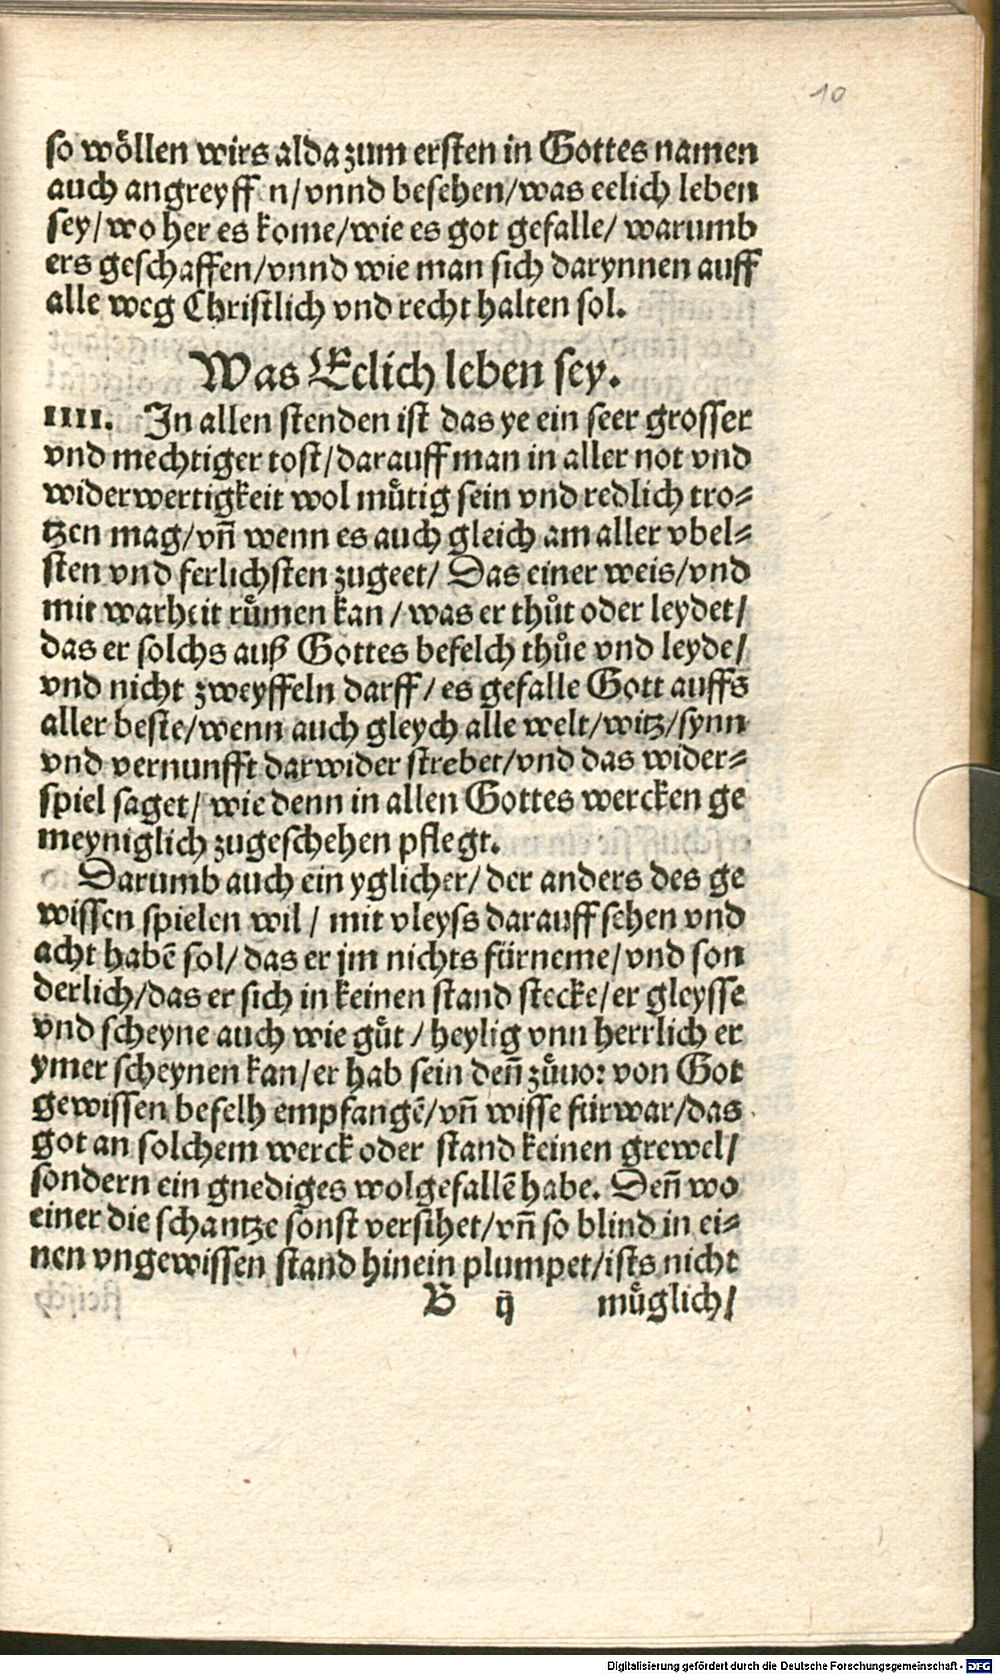 10
so wöllen wirs alda zum ersten in Gottes namen
auch angreyff n/ vnnd besehen/ was eelich leben
sey/ wo her es kome/ wie es got gefalle/ warumb
ers geschaffen/ vnnd wie man sich darynnen auff
alle weg Christlich vnd recht halten sol.
Was Eelich leben sey.
IIII. In allen stenden ist das ye ein seer grosser
vnd mechtiger tost/ darauff man in aller not vnd
widerwertigkeit wol mütig sein vnd redlich tro⸗
tzen mag/ vn̄ wenn es auch gleich am aller vbel⸗
sten vnd ferlichsten zugeet/ Das einer weis/ vnd
mit warheit rümen kan / was er thůt oder leydet/
das er solchs auß Gottes befelch thůe vnd leyde/
vnd nicht zweyffeln darff / es gefalle Gott auffs
aller beste/ wenn auch gleych alle welt/ witz/ synn
vnd vernunfft darwider strebet/ vnd das wider⸗
spiel saget/ wie denn in allen Gottes wercken ge
meyniglich zugeschehen pflegt.
Darumb auch ein yglicher/ der anders des ge
wissen spielen wil / mit vleyss darauff sehen vnd
acht habē sol/ das er jm nichts fürneme/ vnd son
derlich/ das er sich in keinen stand stecke/ er gleysse
vnd scheyne auch wie gůt / heylig vnn herrlich er
ymer scheynen kan/ er hab sein den̄ zůuor von Got
gewissen befelh empfangē/ vn̄ wisse fürwar/ das
got an solchem werck oder stand keinen grewel/
sondern ein gnediges wolgefallē habe. Den̄ wo
einer die schantze sonst versihet/ vn̄ so blind in ei⸗
nen vngewissen stand hinein plumpet/ ists nicht
B ij müglich/
Digitalisierung gefördert durch die Deutsche Forschungsgemeinschaft - DFG